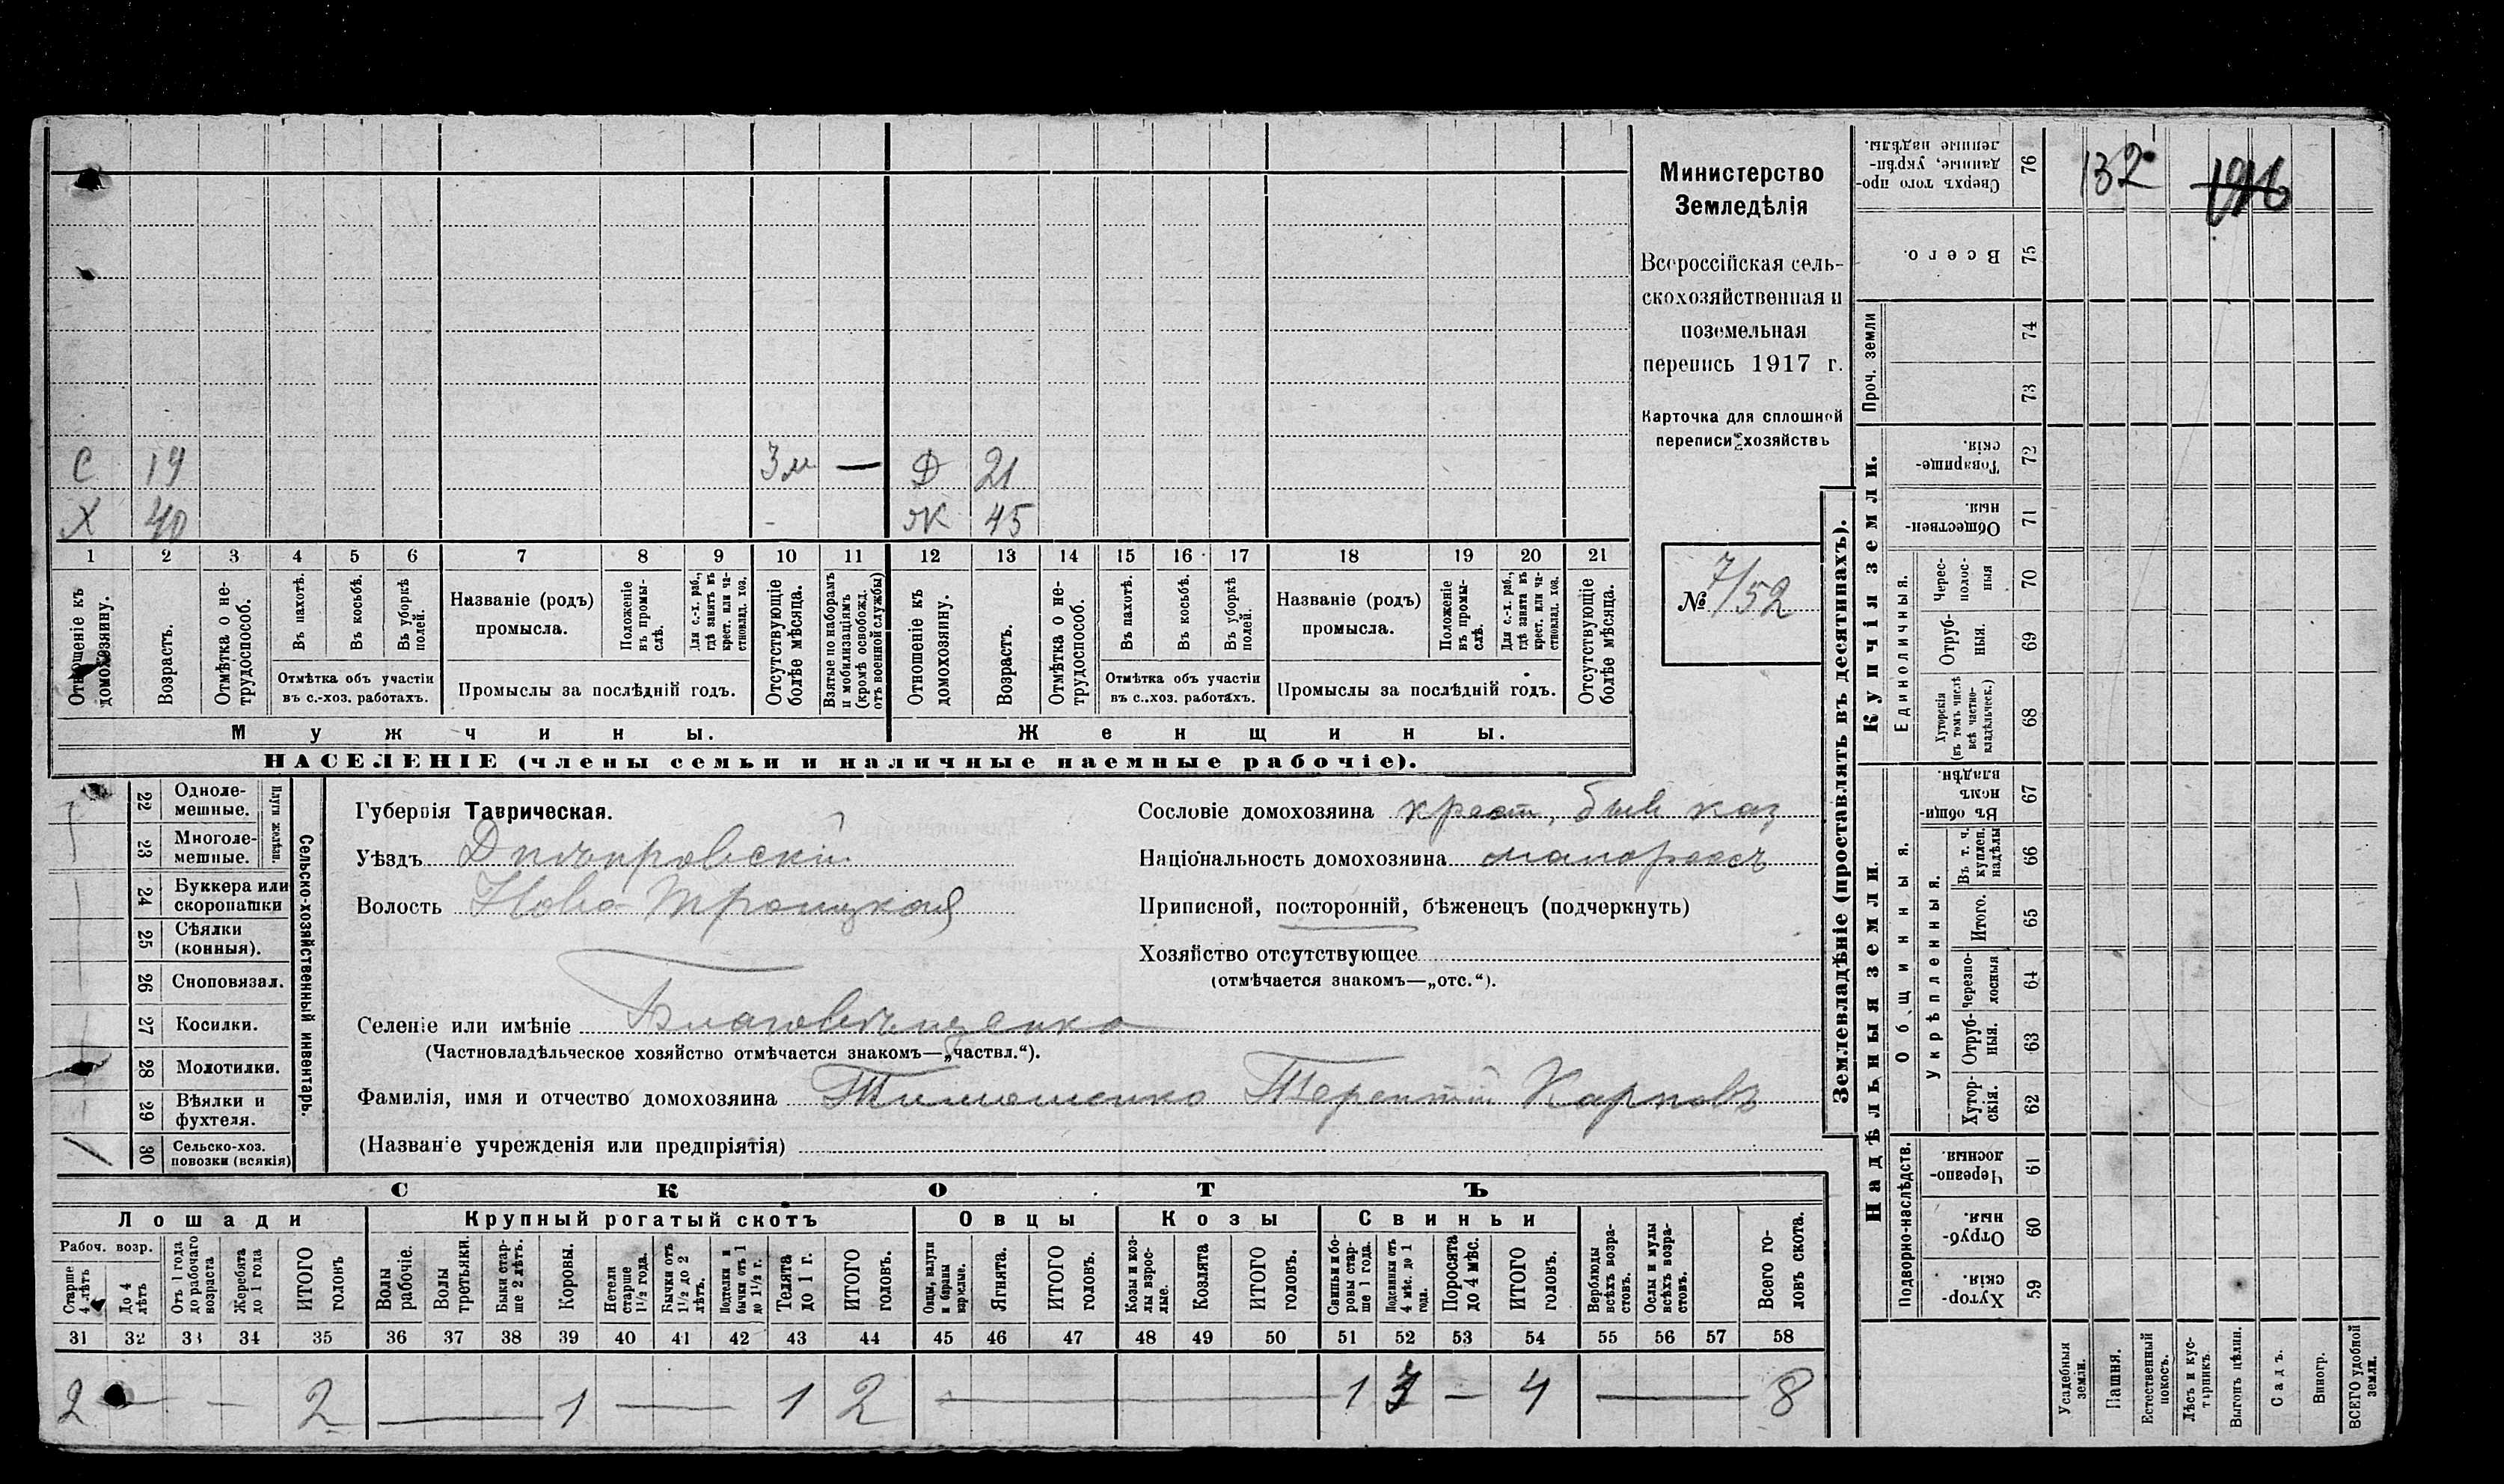 С 19 3 м — Д 21
Х 40 - Ж 45
1 2 3 4 5 6 7 8 9 10 11 12 13 14 15 16 17 18 19 20 21
Отношеніе къ домохозяину.
Возрастъ.
Отмѣтка о не-трудоспособ.
Въ пахотѣ.
Въ косьбѣ.
Въ уборкѣ полей.
Отмѣтка объ участіи
въ с.-хоз. работахъ.
Названіе (родъ)
промысла.
Положеніе въ промы-слѣ.
Для с.-х. раб., гдѣ занятъ въ крест. или ча-стновлад. хоз.
Промыслы за послѣдній годъ.
Отсутствующіе болѣе мѣсяца.
Взятые по наборамъ и мобилизаціямъ (кромѣ освобожд. отъ военной службы)
Отношеніе къ домохозяину.
Возрастъ.
Отмѣтка о не-трудоспособ.
Въ пахотѣ.
Въ косьбѣ.
Въ уборкѣ полей.
Отмѣтка объ участіи
въ с..хоз. работахъ.
Названіе (родъ)
промысла.
Положеніе въ промы-слѣ.
Для с.-х. раб., гдѣ занята въ крест. или ча-стновлад. хоз.
Промыслы за послѣдній годъ.
Отсутствующіе болѣе мѣсяца.
Мужчины.
Женщины.
НАСЕЛЕНІЕ (члены семьи и наличные наемные рабочіе).
Министерство
Земледѣлія
Всероссійская сель-
скохозяйственная и
поземельная
перепись 1917 г.
Карточка для сплошной
переписи хозяйствъ
№ 7/52
22 Одноле-мешные.
23 Многоле-мешные.
Плуги желѣзн.
24 Буккера или скоропашки
25 Сѣялки (конныя).
26 Сноповязал.
27 Косилки.
28 Молотилки.
29 Вѣялки и фухтеля.
30 Сельско-хоз. повозки (всякія)
1
Сельско-хозяйственный инвентарь.
Губернія Таврическая.
Уѣздъ Днѣпровскій
Волость Ново-Троицкая
Селеніе или имѣніе Благовѣщенка
(Частновладѣльческое хозяйство отмѣчается знакомъ—„частвл.“).
Фамилія, имя и отчество домохозяина Тимошенко Терентій Карповъ
(Назван е учрежденія или предпріятія)
Сословіе домохозяина крест, быв каз
Національность домохозяина малороссъ
Приписной, посторонній, бѣженецъ (подчеркнуть)
Хозяйство отсутствующее
(отмѣчается знакомъ—„отс.“).
СКОТЪ
Лошади
Крупный рогатый скотъ
Овцы
Козы
Свиньи
Рабоч. возр.
Старше 4 лѣтъ
До 4 лѣтъ
Отъ 1 года до рабочаго возраста
Жеребята до 1 года
ИТОГО головъ
Волы рабочіе.
Волы третьяки.
Быки стар-ше 2 лѣтъ.
Коровы.
Нетели старше 1½ года.
Бычки отъ 1½ до 2 лѣтъ.
Подтелки и бычки отъ 1 до 1½ г.
Телята до 1 г.
ИТОГО головъ.
Овцы, валухи и бараны взрослые.
Ягнята.
ИТОГО головъ.
Козы и коз-лы взрос-лые.
Козлята
ИТОГО головъ.
Свиньи и бо-ровы стар-ше 1 года.
Подсвинки отъ 4 мѣс. до 1 года.
Поросята до 4 мѣс.
ИТОГО головъ.
Верблюды всѣхъ возра-стовъ.
Ослы и мулы всѣхъ возра-стовъ.
Всего го-ловъ скота.
31 32 33 34 35 36 37 38 39 40 41 42 43 44 45 46 47 48 49 50 51 52 53 54 55 56 57 58
2 — — 2 — 1 — 1 2 — 1 3 — 4 — 8
Землевладѣніе (проставлять въ десятинахъ).
Купчія земли.
Надѣльныя земли.
Проч. земли
Единоличныя.
Общинныя.
Укрѣпленныя.
Подворно-наслѣдств.
Сверхъ того про-данные, укрѣп-ленные надѣлы. 76
132
Всего. 75
74
73
Товарище-скія. 72
Обществен-ныя. 71
Черес-полос-ныя 70
Отруб-ныя. 69
Хуторскія (въ томъ числѣ всѣ частно-владѣльческ.) 68
Въ общи-номъ владѣн. 67
Въ т. ч. куплен. надѣлы 66
Итого. 65
Черезпо-лосныя 64
Отруб-ныя. 63
Хутор-скія. 62
Черезпо-лосныя. 61
Отруб-ныя. 60
Хутор-скія. 59
Усадебныя земли.
Пашня.
Естественный покосъ.
Лѣсъ и кус-тарникъ.
Выгонъ цѣлин.
Садъ.
Виногр.
ВСЕГО удобной земли.